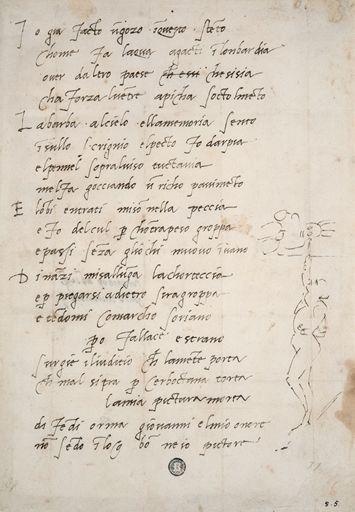 I o gia facto ū gozo ī questo stēto
chome fa laqua agacti ī lombardia
over daltro paese ch essi che sisia
cha forza lvētre apicha socto lmēto
L a barba alcielo ellamemoria sento
ī sullo scrignio elpecto fo darpia
elpennel sopraluiso tuctavia
melfa gocciando ū richo pavimēto
E lōbi entrati misō nella peccia
e fo delcul p chōtrapeso groppa
epassi sēza gliōchi muovo ī vano
D ināzi misallūga lachorteccia
ep piegarsi adietro siragroppa
e tēdomi comarcho soriano
po fallace e strano
surgie iliudicio ch lamēte porta
ch mal sitra p cerboctana torta
lamia pictura morta
difēdi orma giovanni elmio onore
nō sēdo ī loco bō ne io pictore
8.5